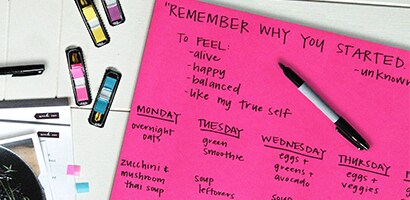 "REMEMBER WHY YOU STARTED
-unknown
TO FEEL:
-alive
-happy
-balanced
-like my true self
MONDAY
overnight
oats
zucchini &
mushroom
thai soup
TUESDAY
green
smoothie
soup
leftovers
WEDNESDAY
eggs +
greens +
avocado
THURSDAY
eggs +
veggies